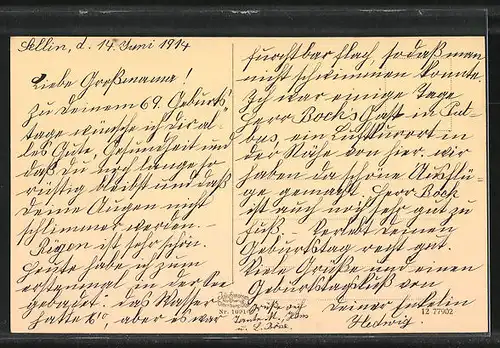 Sellin, d. 14. Juni 1914
Liebe Großmama!
Zu Deinem 69. Geburts-
tage wünsche ich Dir al-
les Gute, Gesundheit und
daß Du noch lange so
rüstig bleibst und daß
Deine Augen nicht
schlimmer werden. –
Rügen ist sehr schön.
Heute habe ich zum
erstenmal in der See
gebadet. Das Wasser
hatte 16°, aber es war
furchtbar flach, so daß man
nicht schwimmen konnte.
Ich war einige Tage
Herr Bocks Gast in Put-
bus, ein Luftkurort in
der Nähe von hier. Wir
haben da schöne Ausflü-
ge gemacht. Herr Bock
ist auch noch sehr gut zu
Fuß. – Verlebt Deinen
Geburtstag recht gut.
Viele Grüße und einen
Geburtstagskuß von
Deiner Enkelin
Hedwig.
Grüße auch
Tante M., Hans
u. L. Böse.
Nr. 1091
12 77902